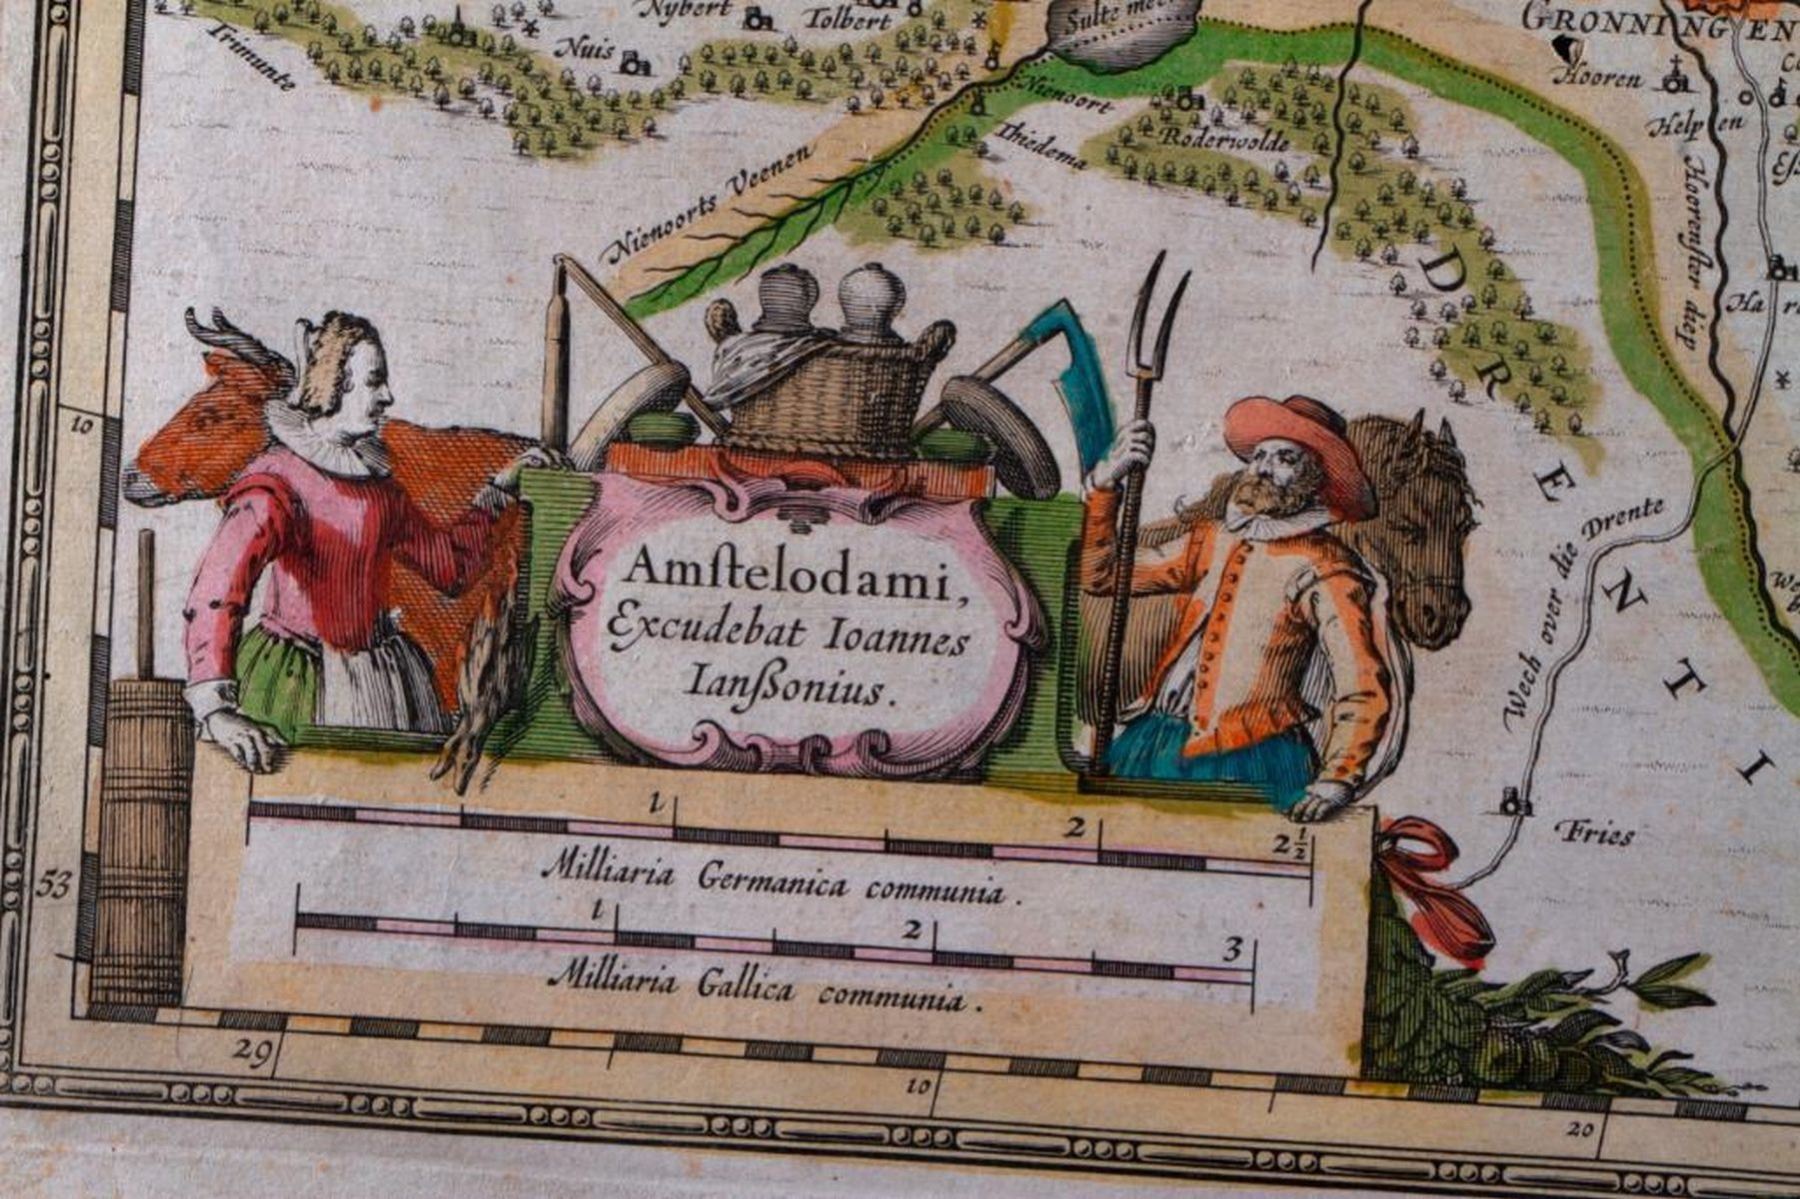 Nybert
Tolbert
Sulte mee
GRONNINGEN
Trimunte
Nuis
Hooren
Nienoort
Helpen
Thiedema
Roderwolde
Nienoorts Veenen
Hoorenſter diep
DRENTI
10
Wech over die Drente
Amſtelodami,
Excudebat Ioannes
Ianßonius.
1
2
2½
Milliaria Germanica communia.
Fries
53
1
2
3
Milliaria Gallica communia.
29
10
20